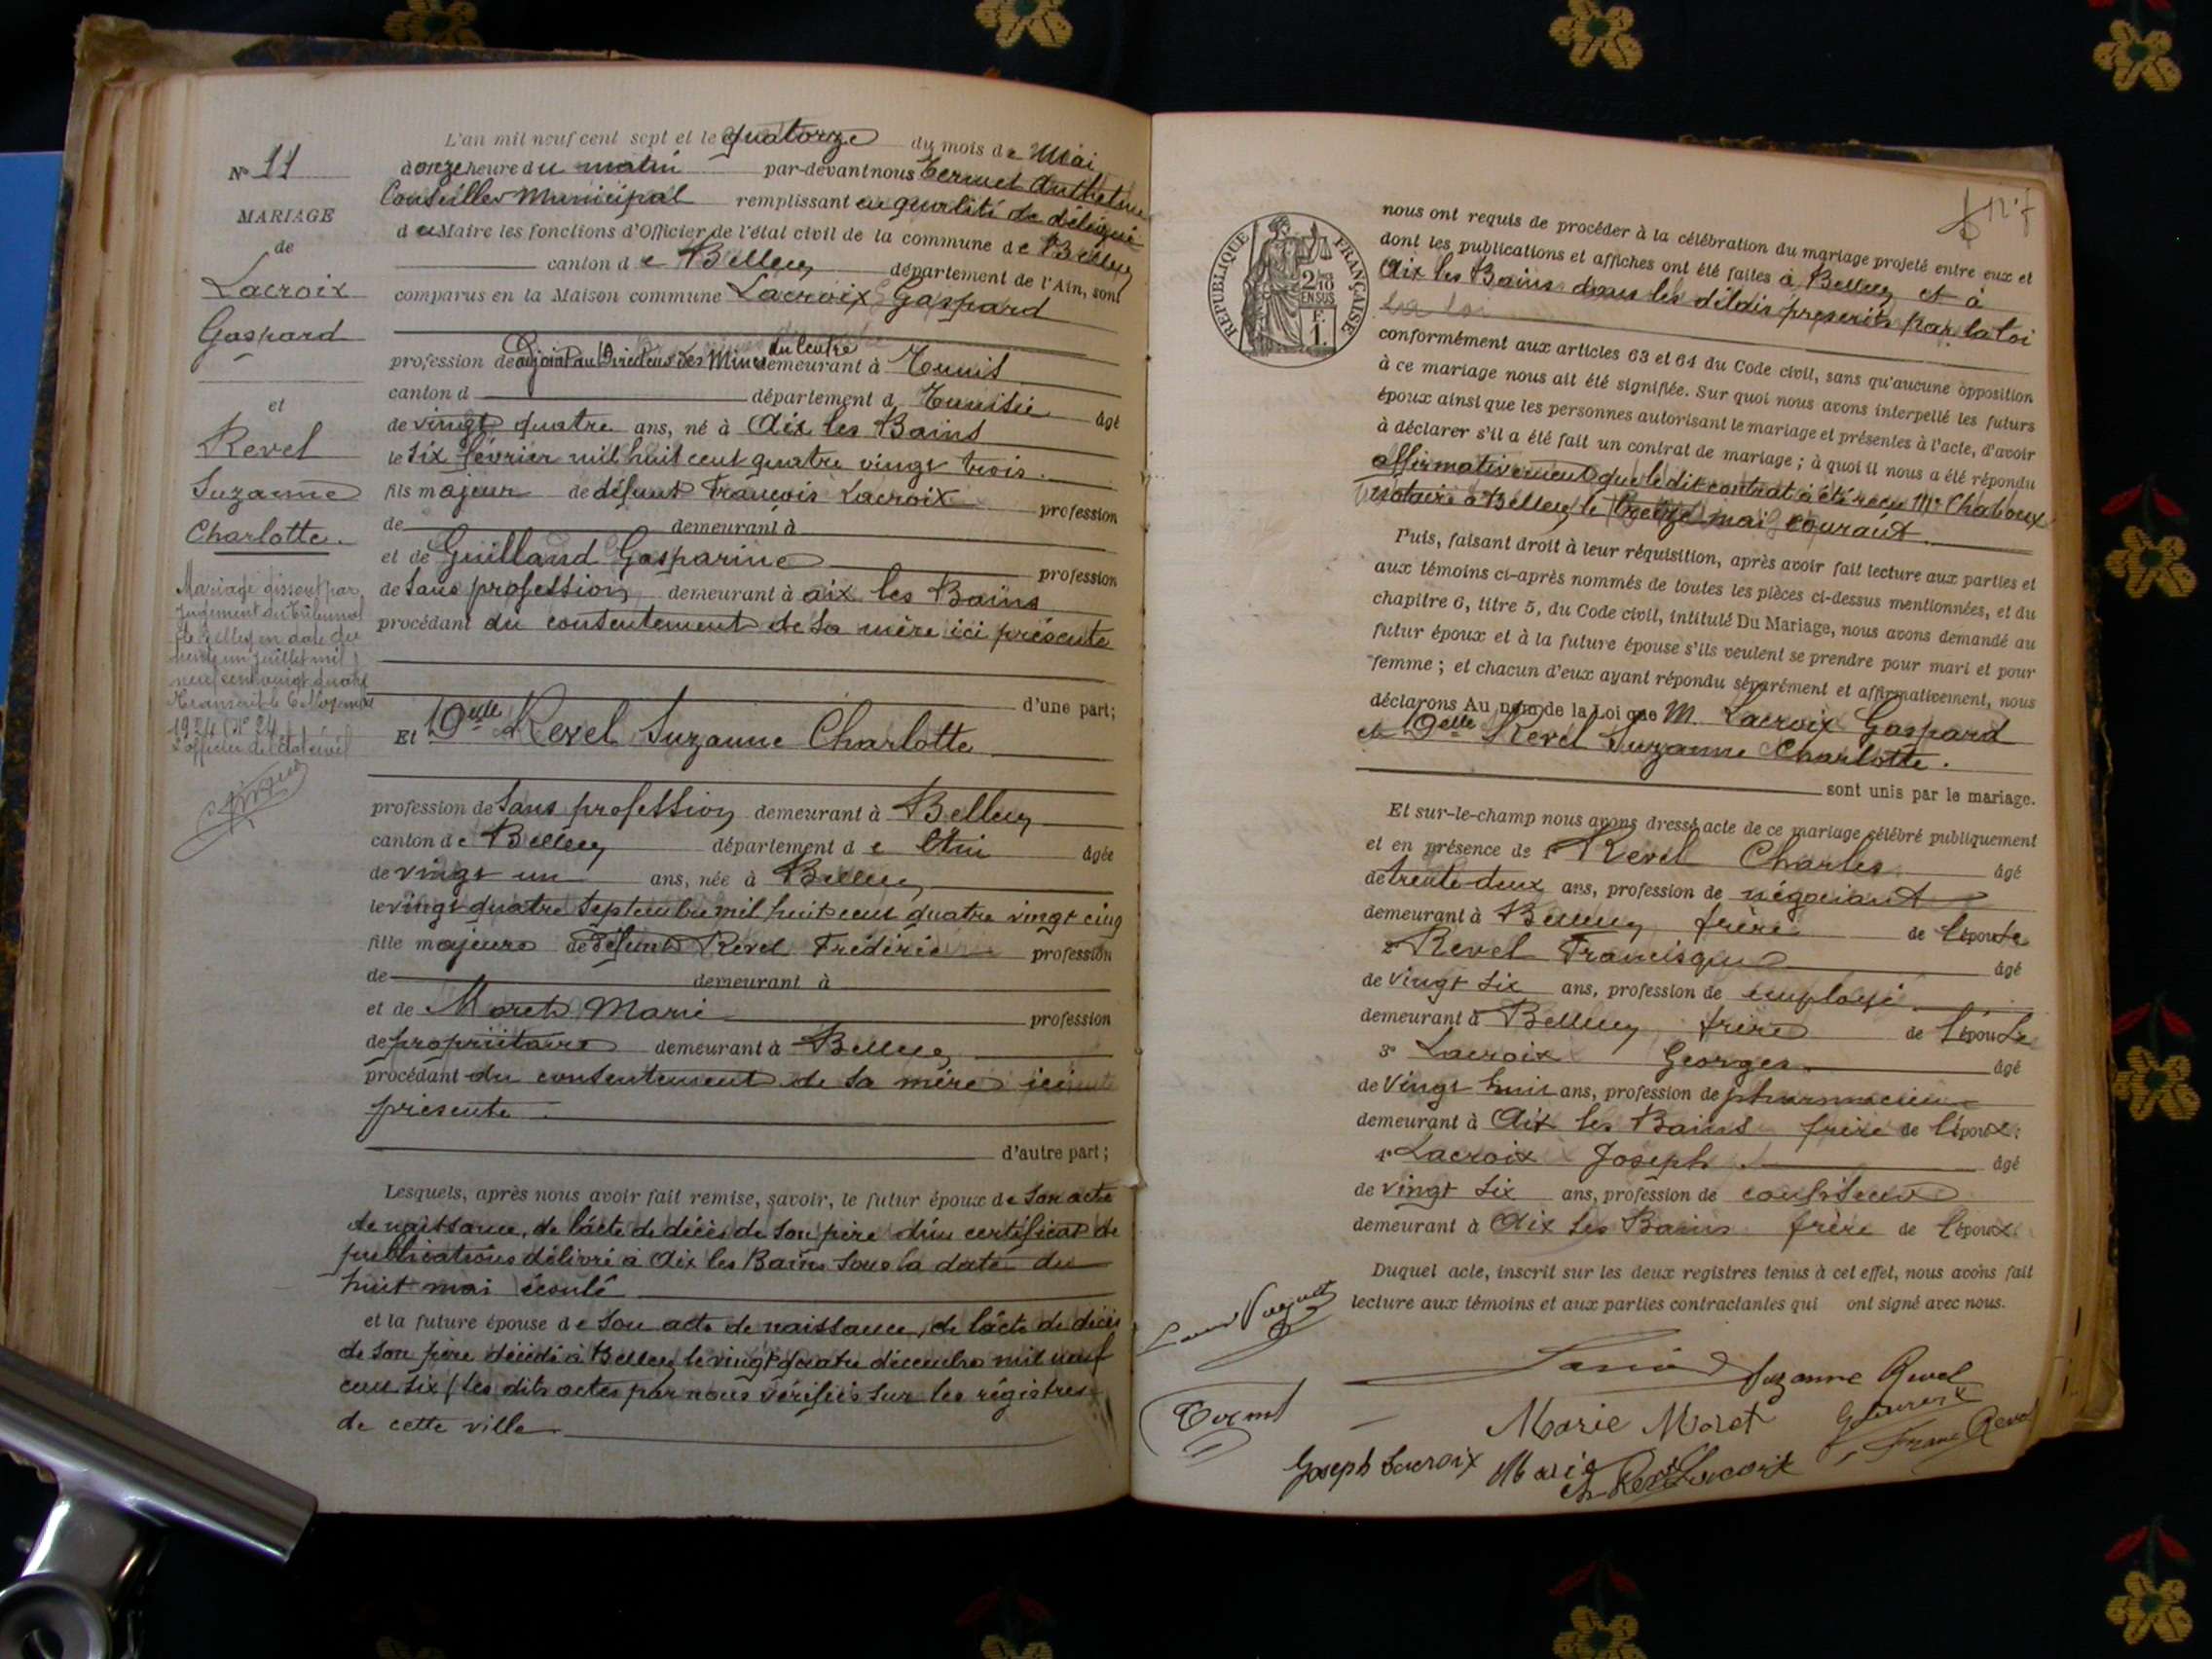 N° 11
MARIAGE
de
Lacroix
Gaspard
et
Revel
Suzanne
Charlotte.
Mariage dissout par
jugement du Tribunal
de Belley en date du
trente un juillet mil
neuf cent vingt quatre
Transcrit le
1924 (N° 24)
L'officier de l'état civil
L'an mil neuf cent sept et le quatorze du mois de Mai
à onze heure du matin par-devant nous Anthelme
Conseiller Municipal remplissant en qualité de délégué
du Maire les fonctions d'Officier de l'état civil de la commune de Belley
canton de Belley département de l'Ain, sont
comparus en la Maison commune Lacroix Gaspard
du Centre
profession de adjoint au Directeur des Mines demeurant à Tunis
canton d département d Tunisie âgé
de vingt quatre ans, né à Aix les Bains
le six février mil huit cent quatre vingt trois.
fils majeur de défunt François Lacroix profession
de demeurant à
et de Guilland Gasparine profession
de sans profession demeurant à aix les Bains
procédant du consentement de sa mère ici présente
d'une part;
Et Delle Revel Suzanne Charlotte
profession de sans profession demeurant à Belley
canton de Belley département de l'Ain âgée
de vingt un ans, née à Belley
le vingt quatre septembre mil huit cent quatre vingt cinq
fille majeure de défunt Revel Frédéric profession
de demeurant à
et de Moret Marie profession
de propriétaire demeurant à Belley
procédant du consentement de sa mère ici
présente
d'autre part;
Lesquels, après nous avoir fait remise, savoir, le futur époux de son acte
de naissance, de l'acte de décès de son père d'un certificat de
publications délivré à Aix les Bains sous la date du
huit mai écoulé
et la future épouse de son acte de naissance, de l'acte de décès
de son père décédé à Belley le vingt quatre décembre mil neuf
cent six (les dits actes par nous vérifiés sur les régistres
de cette ville
RÉPUBLIQUE FRANÇAISE
2/10
EN SUS
F.
1.
nous ont requis de procéder à la célébration du mariage projeté entre eux et
dont les publications et affiches ont été faites à Belley et à
Aix les Bains dans les délais prescrits par la loi
conformément aux articles 63 et 64 du Code civil, sans qu'aucune opposition
à ce mariage nous ait été signifiée. Sur quoi nous avons interpellé les futurs
époux ainsi que les personnes autorisant le mariage et présentes à l'acte, d'avoir
à déclarer s'il a été fait un contrat de mariage ; à quoi il nous a été répondu
affirmativement que le dit contrat a été reçu Me Chaboux
notaire à Belley, le treize mai courant.
Puis, faisant droit à leur réquisition, après avoir fait lecture aux parties et
aux témoins ci-après nommés de toutes les pièces ci-dessus mentionnées, et du
chapitre 6, titre 5, du Code civil, intitulé Du Mariage, nous avons demandé au
futur époux et à la future épouse s'ils veulent se prendre pour mari et pour
femme ; et chacun d'eux ayant répondu séparément et affirmativement, nous
déclarons Au nom de la Loi que M. Lacroix Gaspard
et Delle Revel Suzanne Charlotte.
sont unis par le mariage.
Et sur-le-champ nous avons dressé acte de ce mariage célébré publiquement
et en présence de 1° Revel Charles âgé
de trente-deux ans, profession de négociant
demeurant à Belley frère de l'épouse
2° Revel Francisque âgé
de vingt six ans, profession de employé
demeurant à Belley frère de l'épouse
3° Lacroix Georges âgé
de vingt huit ans, profession de pharmacien
demeurant à Aix les Bains frère de l'époux.
4° Lacroix Joseph âgé
de vingt six ans, profession de confiseur
demeurant à Aix les Bains frère de l'époux.
Duquel acte, inscrit sur les deux registres tenus à cet effet, nous avons fait
lecture aux témoins et aux parties contractantes qui ont signé avec nous.
Suzanne Revel
Marie Moret
Franc Revel
Joseph Lacroix